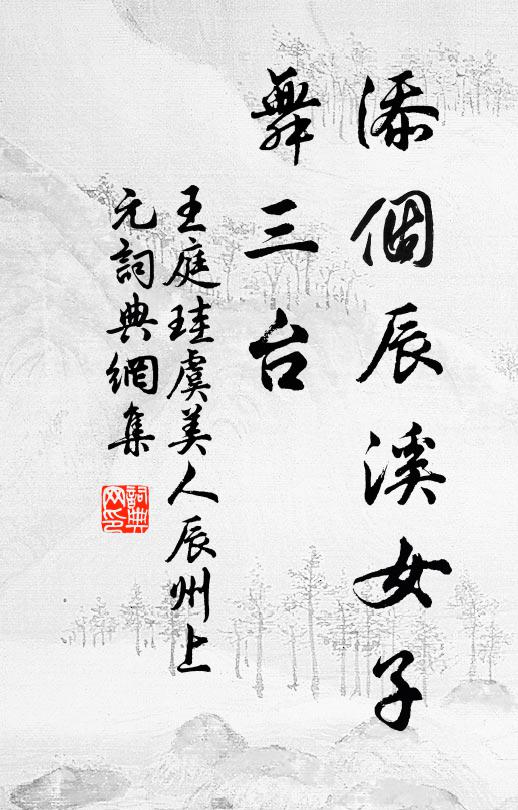 添個辰溪女子
舞三台
王庭珪虞美人辰州上
元詞典網集
詞典
网印